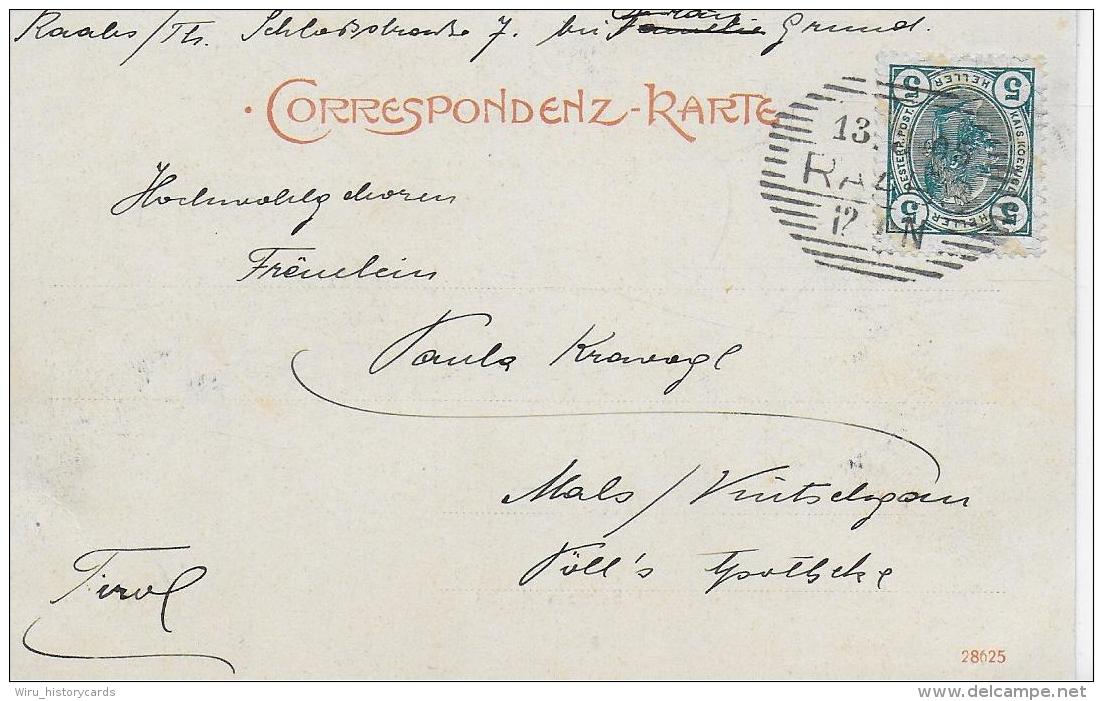 Raabs/Th. Schloßstrasse 7. bei Grund.
CORRESPONDENZ-KARTE
13.
RAA
12 N
5 HELLER 5
KAIS. KOENIGL. OESTERR. POST.
5 HELLER 5
Hochwohlgeboren
Fräulein
Paula Kravogl
Mals / Vintschgau
Pöll's Apotheke
Tirol
28625
Wiru_historycards
delcampe.net